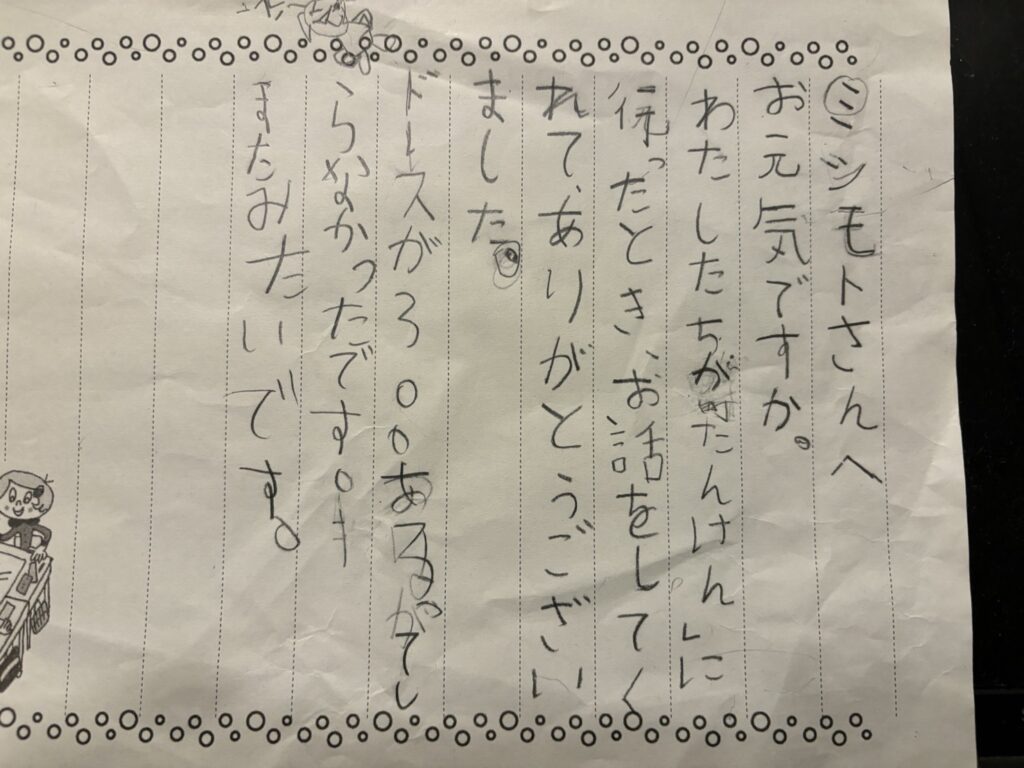 ミシモトさんへ
お元気ですか。
わたしたちが町たんけん」に
行ったとき、お話をしてく
れて、ありがとうござい
ました。
ドレスが300あるてし
らなかったです。
またみたいです。